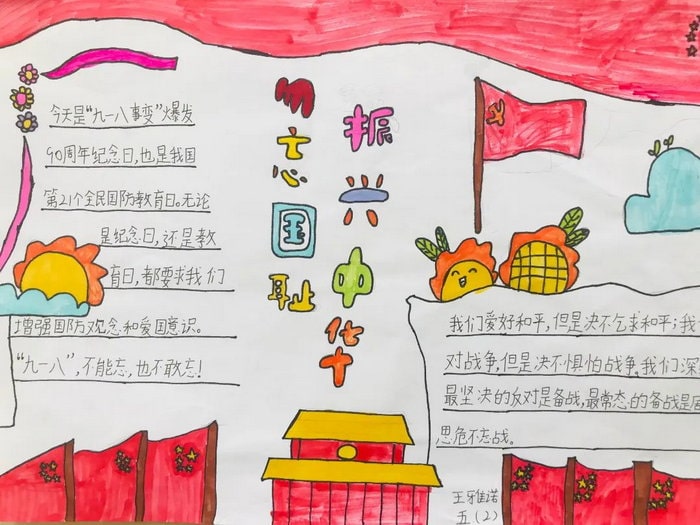 今天是“九一八事变”爆发
90周年纪念日,也是我国
第21个全民国防教育日。无论
是纪念日,还是教
育日,都要求我们
增强国防观念和爱国意识。
“九一八”,不能忘,也不敢忘!
勿忘国耻
振兴中华
我们爱好和平,但是决不乞求和平;我
对战争,但是决不惧怕战争。我们深
最坚决的反对是备战,最常态的备战是居
思危不忘战。
王雅诺
五(2)